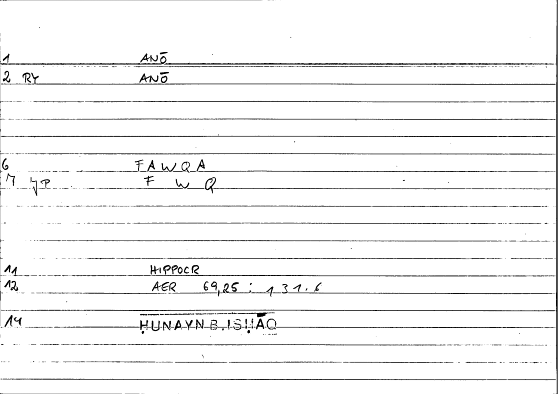 1 ANŌ
2 RY ANŌ
6 FAWQA
7 F W Q
11 HIPPOCR
12 AER 69,25 : 131.6
14 ḤUNAYN B. ISḤĀQ